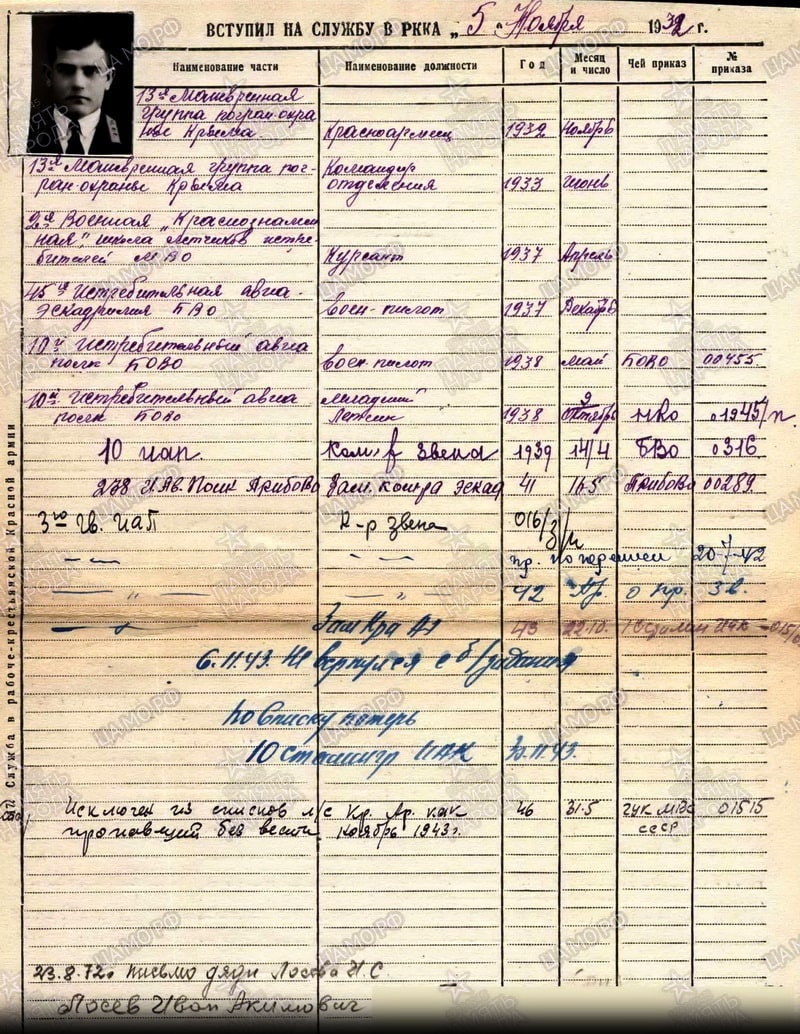 ВСТУПИЛ НА СЛУЖБУ В РККА „5“ Ноября 1932 г.
Наименование части Наименование должности Год Месяц и число Чей приказ № приказа
13я Маневренная
группа погран-охра
ны Крыма Красноармеец 1932 Ноябрь
13я Маневренная группа пог- Командир
ран-охраны Крыма отделения 1933 июнь
2я Военная „Краснознамен
ная" школа летчиков истре-
бителей МВО Курсант 1937 Апрель
45я Истребительная авиа-
эскадрилия БВО Воен-пилот 1937 Декабрь
10й истребительный авиа
полк БОВО Воен-пилот 1938 май БОВО 00455
10й истребительный авиа Младший 9
полк БОВО Летчик 1938 октябрь НКО 01945/п.
10 иап. Ком-р звена 1939 14/4 БВО 0316
238 И.Ав.Полк Зам. ком-ра эскад 41 ПрибОВО 00289
3го Гв. ИАП К-р звена 016/3/н
— — — — 20-7-42
— „ — — „ — 42
43 22.10.
6.11.43. Не вернулся с б/задания
по списку потерь
10 Сталингр ИАК 30.11.43.
Исключен из списков л/с Кр. Ар. как 46 31.5 ГУК МВС 01515
пропавший без вести ноябрь 1943г. СССР
23.8.72г письмо дяди Лосева И.С
Лосев Иван Акимович
Служба в рабоче-крестьянской Красной армии
ЦАМО РФ
ПАМЯТЬ НАРОДА